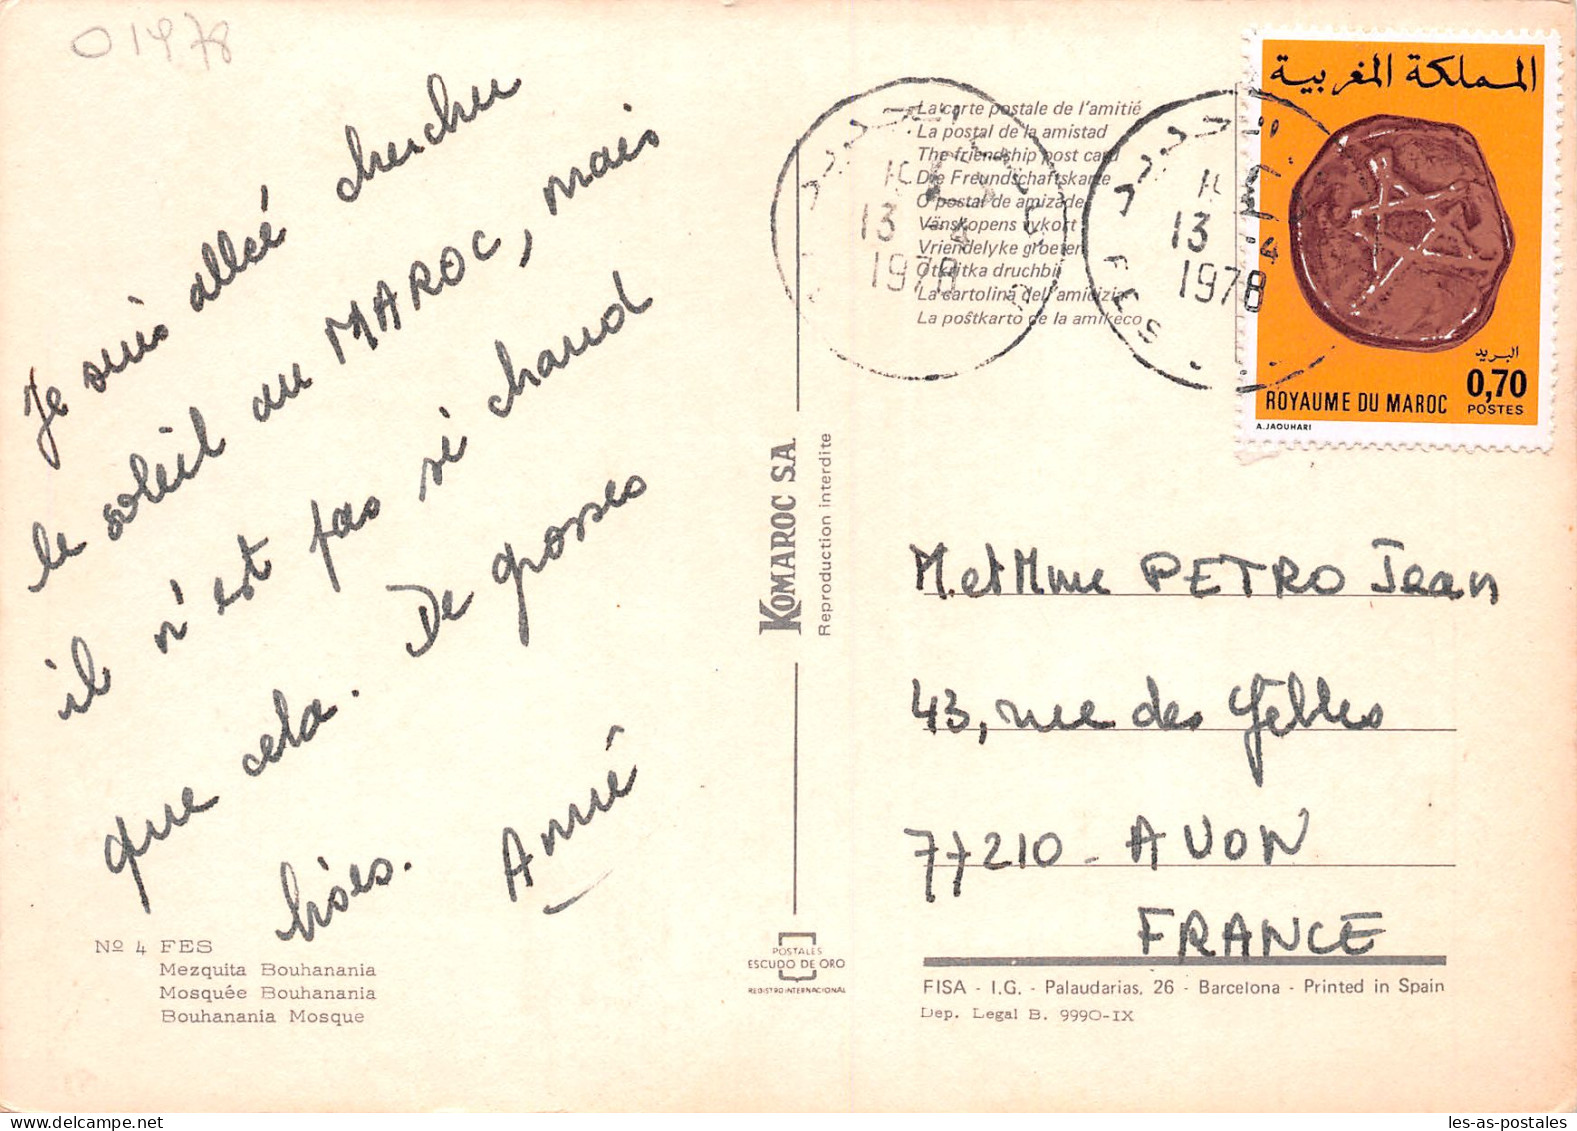 01978
Je suis allé chercher
le soleil au MAROC, mais
il n'est pas si chaud
que cela. De grosses
bises. Aimé
Nº 4 FES
Mezquita Bouhanania
Mosquée Bouhanania
Bouhanania Mosque
KOMAROC S.A.
Reproduction interdite
POSTALES
ESCUDO DE ORO
REGISTRO INTERNACIONAL
La carte postale de l'amitié
La postal de la amistad
The friendship post card
Die Freundschaftskarte
O postal de amizade
Vänskopens vykort
Vriendelyke groeten
Otkritka druchbii
La cartolina dell'amicizia
La poŝtkarto de la amikeco
13
4
1978
13
4
1978
FES
المملكة المغربية
البريد
0,70
POSTES
ROYAUME DU MAROC
A.JAOUHARI
M. et Mme PETRO Jean
43, rue des Yèbles
77210 - AVON
FRANCE
FISA - I.G. - Palaudarias, 26 - Barcelona - Printed in Spain
Dep. Legal B. 9990-IX
les-as-postales